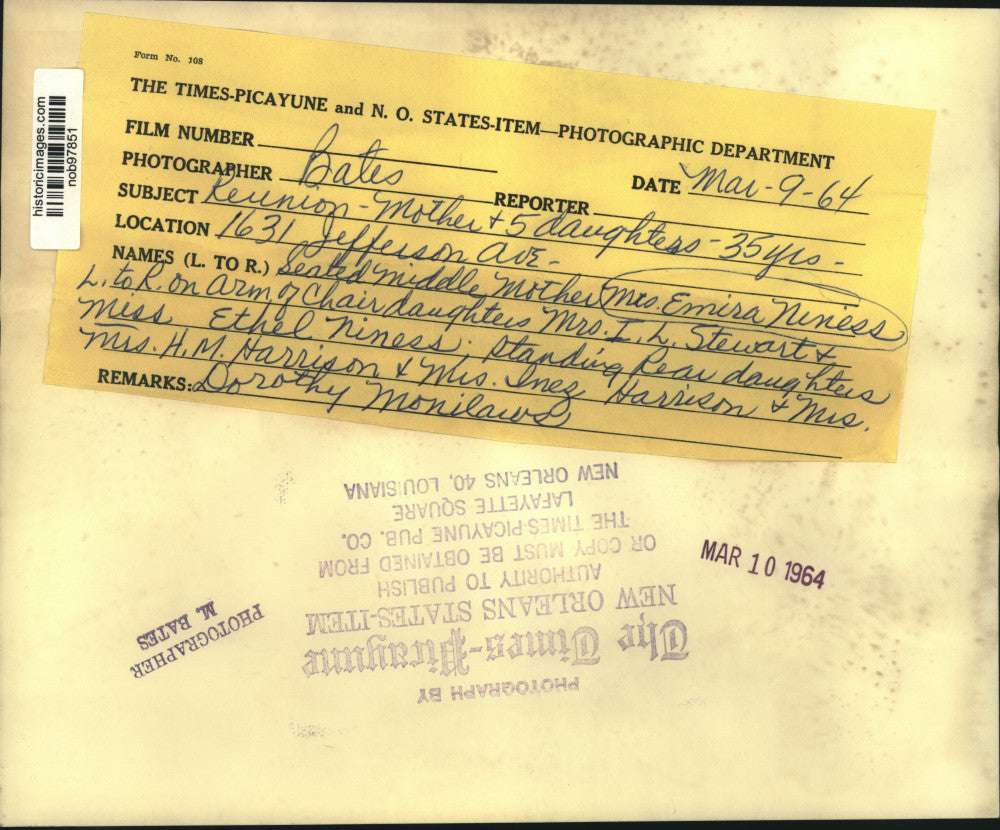 historicimages.com
nob97851
Form No. 108
THE TIMES-PICAYUNE and N. O. STATES-ITEM—PHOTOGRAPHIC DEPARTMENT
FILM NUMBER
PHOTOGRAPHER Bates DATE Mar-9-64
SUBJECT Reunion-Mother + 5 daughters-35yrs- REPORTER
LOCATION 1631 Jefferson Ave-
NAMES (L. TO R.) Seated middle Mother Mrs. Emira Niness
L. to R. on arm of Chair daughters Mrs. I. L. Stewart +
Miss Ethel Niness; standing Rear daughters
Mrs. H. M. Harrison + Mrs. Inez Harrison + Mrs.
REMARKS: Dorothy Monilaws
MAR 10 1964
PHOTOGRAPHER
M. BATES
PHOTOGRAPH BY
The Times-Picayune
NEW ORLEANS STATES-ITEM
AUTHORITY TO PUBLISH
OR COPY MUST BE OBTAINED FROM
THE TIMES-PICAYUNE PUB. CO.
LAFAYETTE SQUARE
NEW ORLEANS 40, LOUISIANA